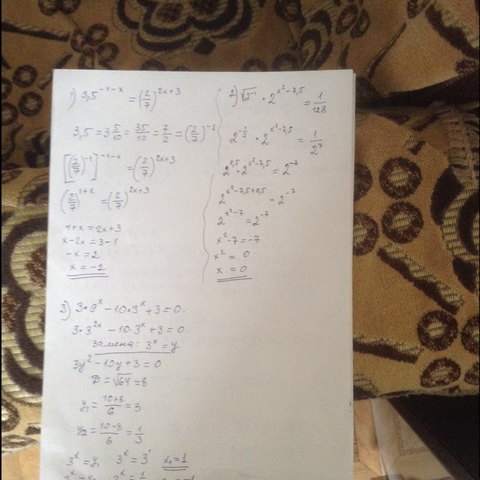 1) 3,5^{-1-x} = (2/7)^{2x+3}
3,5 = 3 5/10 = 35/10 = 7/2 = (2/7)^{-1}
[(2/7)^{-1}]^{-1-x} = (2/7)^{2x+3}
(2/7)^{1+x} = (2/7)^{2x+3}
1+x = 2x+3
x-2x = 3-1
-x = 2
x = -2
2) √2^{-1} · 2^{x²-7,5} = 1/128
2^{-1/2} · 2^{x²-7,5} = 1/2^7
2^{0,5} · 2^{x²-7,5} = 2^{-7}
2^{x²-7,5+0,5} = 2^{-7}
2^{x²-7} = 2^{-7}
x²-7 = -7
x² = 0
x = 0
3) 3·9^x - 10·3^x + 3 = 0.
3·3^{2x} - 10·3^x + 3 = 0.
замена: 3^x = y
3y² - 10y + 3 = 0.
D = √64 = 8
y₁ = 10+8/6 = 3
y₂ = 10-8/6 = 1/3
3^x = y₁ 3^x = 3^1 x₁ = 1